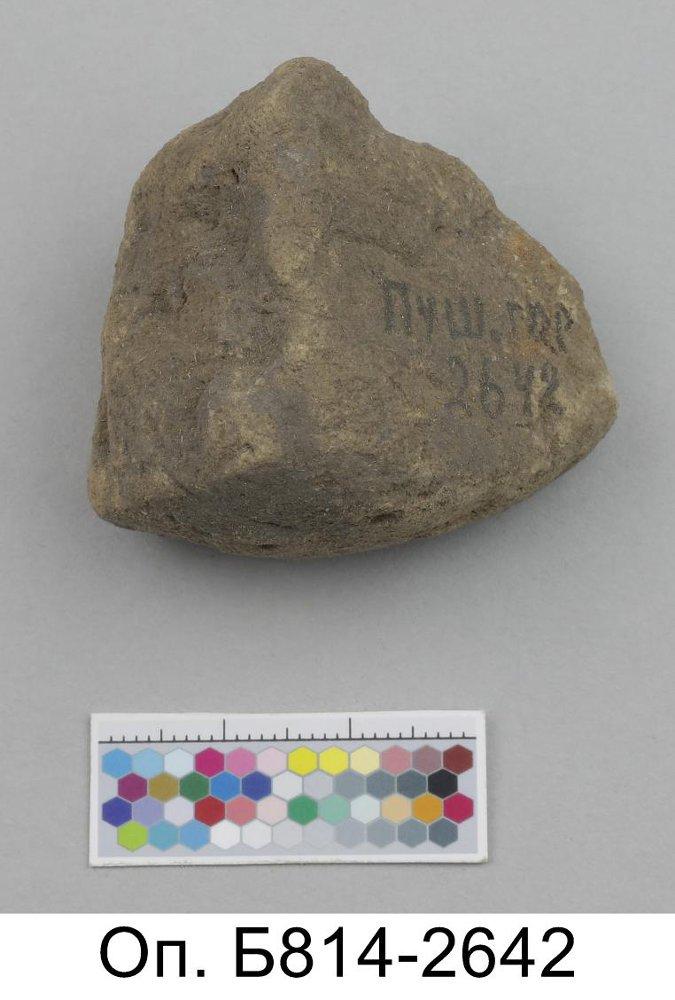 Пуш. гор
2642
Оп. Б814-2642